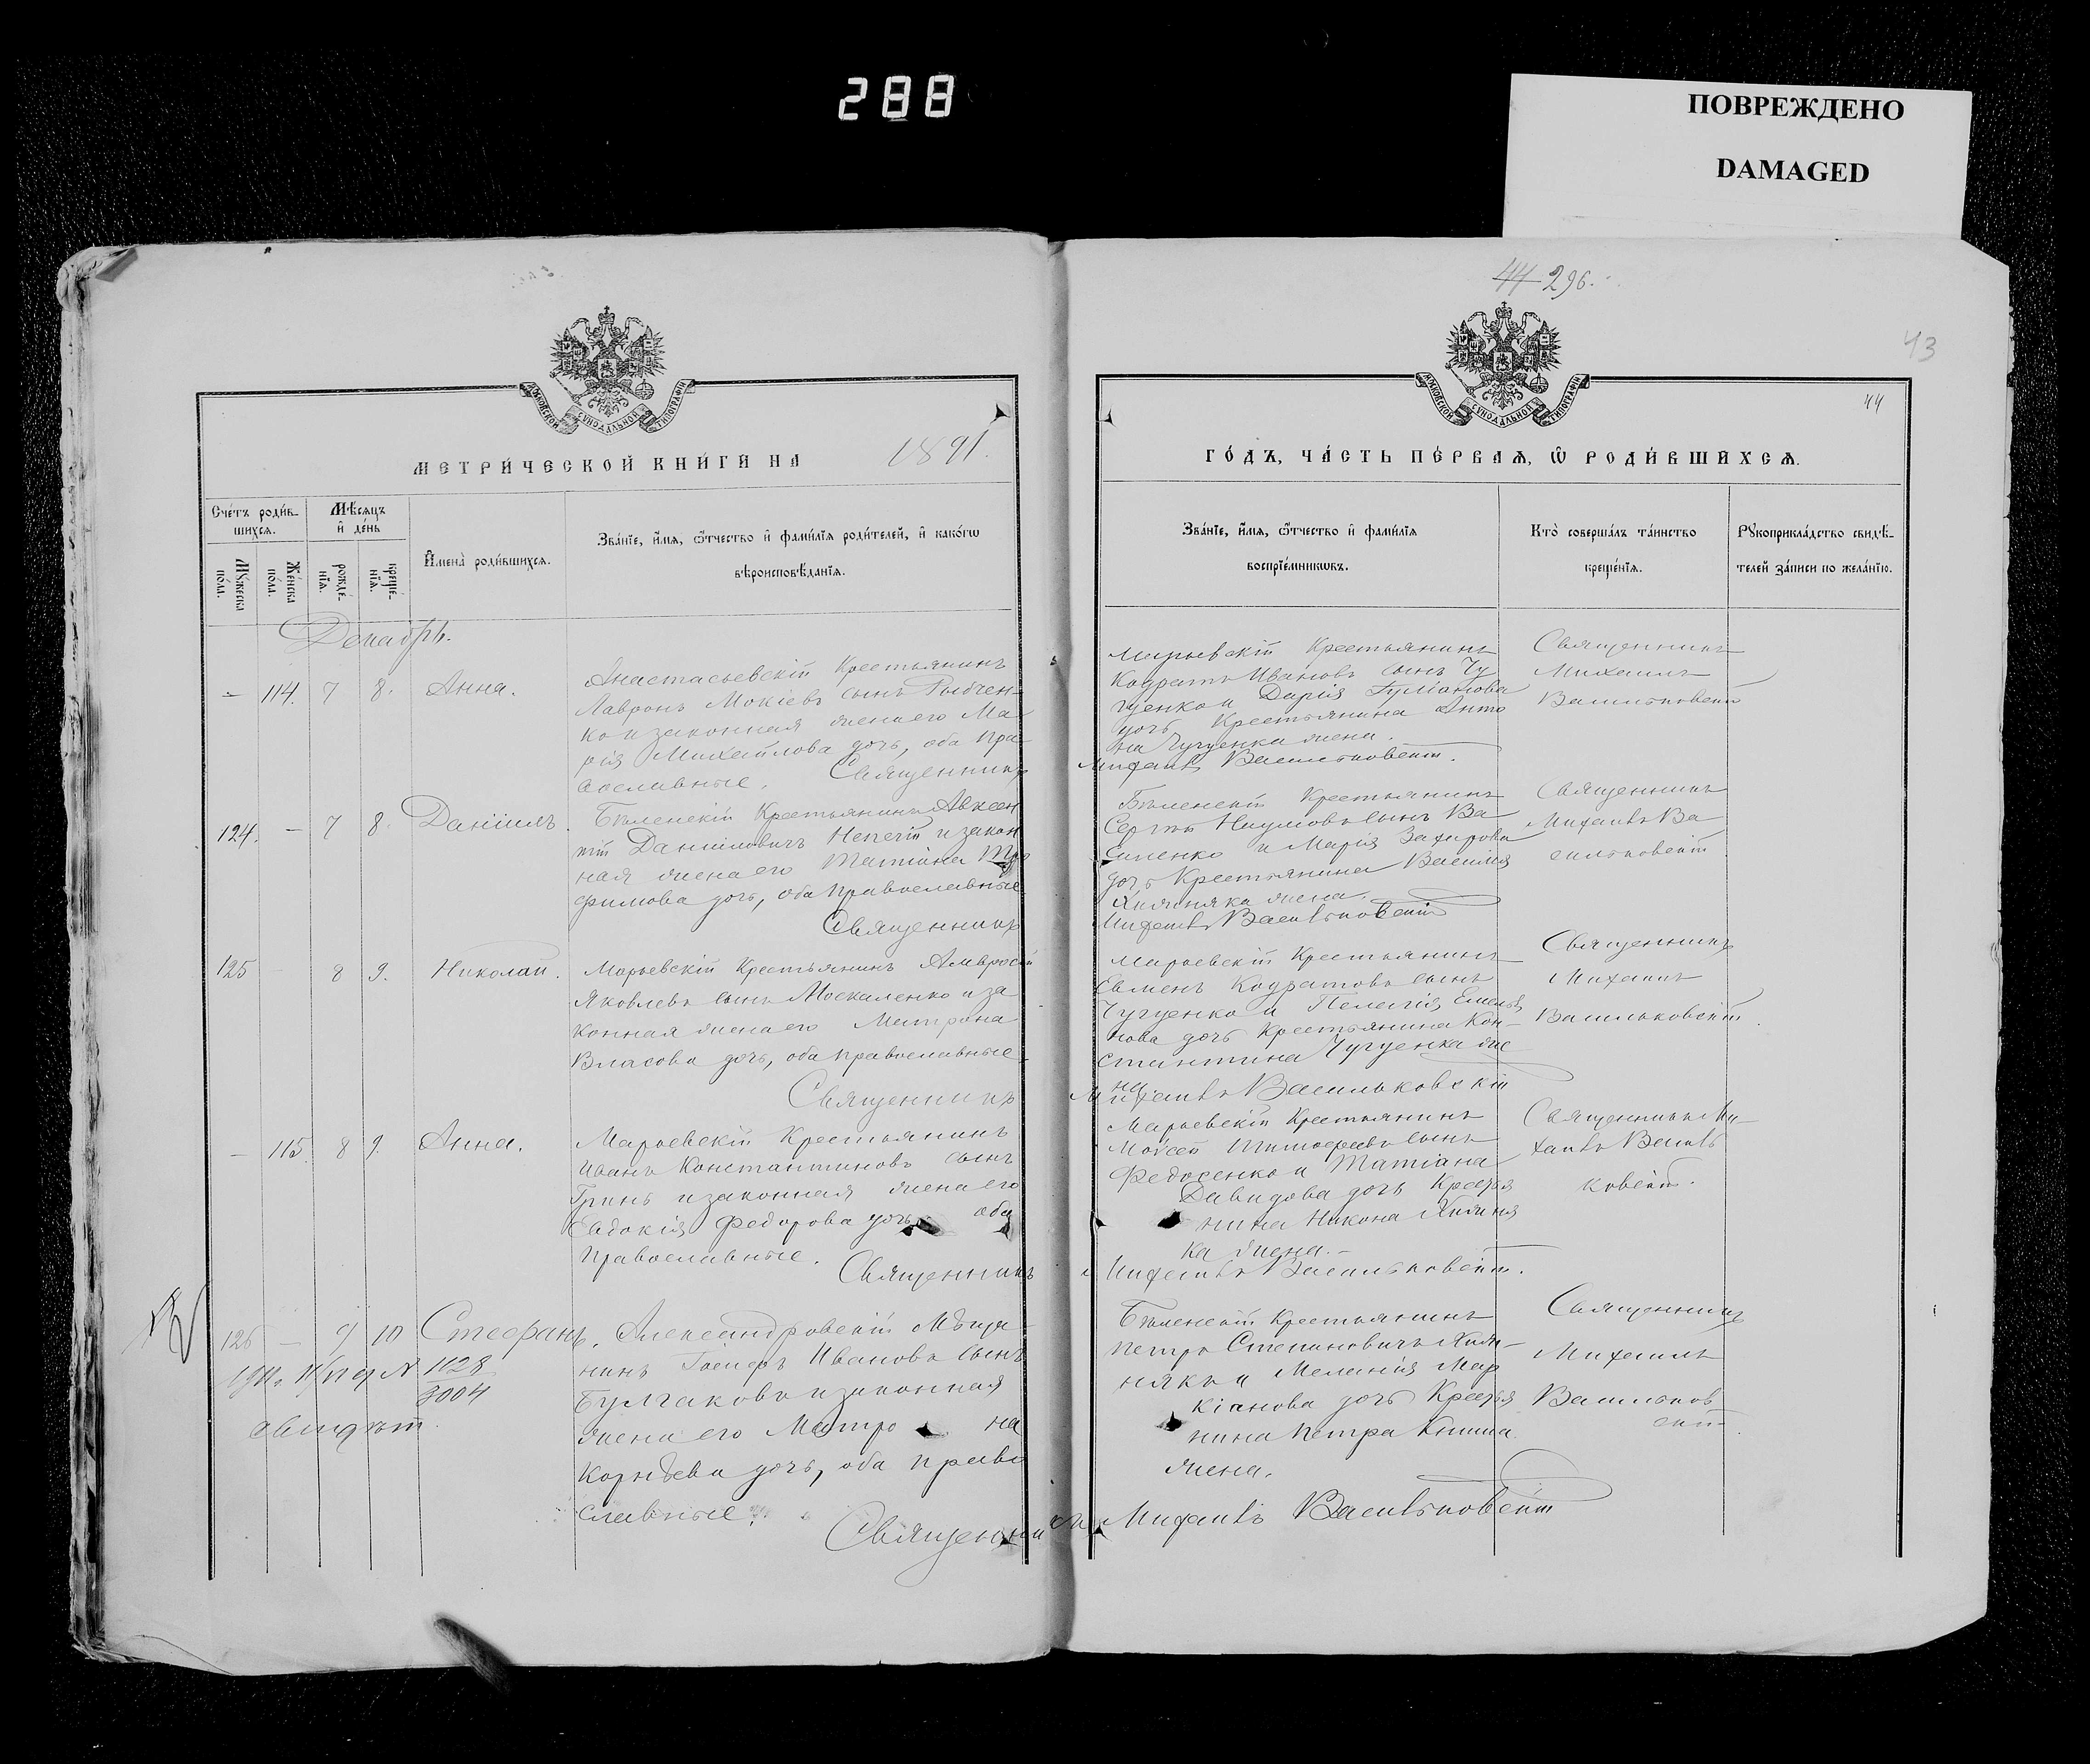 288
ПОВРЕЖДЕНО
DAMAGED
44 296.
43
44
МОСКОВСКОЙ СУНОДАЛЬНОЙ ТИПОГРАФІИ
МОСКОВСКОЙ СУНОДАЛЬНОЙ ТИПОГРАФІИ
МЕТРИ́ЧЕСКОЙ КНИ́ГИ НА 1891.
ГО́ДЪ, ЧА́СТЬ ПЕ́РВАѦ, Ѽ РОДИ́ВШИХСѦ.
Сче́тъ роди́в-
шихсѧ.
Мѣ́сѧцъ
и҆ де́нь
Мꙋ́жеска
по́ла.
Же́нска
по́ла.
рожде́-
нїѧ.
креще́-
нїѧ.
И҆мена̀ роди́вшихсѧ.
Зва́нїе, и҆́мѧ, ѻ҆́тчество и҆ фами́лїѧ роди́телей, и҆ како́гѡ
вѣроисповѣ́данїѧ.
Зва́нїе, и҆́мѧ, ѻ҆́тчество и҆ фами́лїѧ
воспрїе́мникѡвъ.
Кто̀ соверша́лъ та́инство
креще́нїѧ.
Рꙋкоприкла́дство свидѣ́-
телей за́писи по жела́нїю.
Декабрь.
– 114. 7 8. Анна.
Анастасьевскій Крестьянинъ
Лавронъ Мокіевъ сынъ Рыбчен
ко и законная жена его Ма
рія Михайлова дочь, оба пра
вославные. Священникъ
Марьевскій Крестьянинъ
Кодратъ Ивановъ сынъ Чу
гуенко и Дарія
дочь Крестьянина Анто
на Чугуенка жена.
Михаилъ Васильковскій.
Священникъ
Михаилъ
Васильковскій
124. – 7 8. Даніилъ.
Бѣленскій Крестьянинъ Авксен
тій Даниловичъ Непечій и закон
ная жена его Татіана Тро
фимова дочь, оба православные
Священникъ
Бѣленскій Крестьянинъ
Сергѣй Наумовъ сынъ Ва
силенко и Марія Захарова
дочь Крестьянина Василія
Хижняка жена.
Михаилъ Васильковскій
Священникъ
Михаилъ Ва
сильковскій
125 – 8 9. Николай.
Марьевскій Крестьянинъ Амвросій
Яковлевъ сынъ Москаленко и за
конная жена его Матрона
Власова дочь, оба православные
Священникъ
Марьевскій Крестьянинъ
Евменъ Кодратовъ сынъ
Чугуенко и Пелагія Емелья
нова дочь Крестьянина Кон-
стантина Чугуенка же
на
Михаилъ Васильковскій
Священникъ
Михаилъ
Васильковскій
– 115. 8 9. Анна.
Марьевскій Крестьянинъ
Иванъ Константиновъ сынъ
Гринь и законная жена его
Евдокія Федорова дочь, оба
православные. Священникъ
Марьевскій Крестьянинъ
Моисей Тимофеевъ сынъ
Федосенко и Татіана
Давидова дочь Крестья
нина Никона Хижня
ка жена.–
Михаилъ Васильковскій.
Священникъ Ми-
хаилъ Василь
ковскій.
126 – 9 10 Стефанъ.
№ 1128
3004
Александровскій Мѣща
нинъ Іосифъ Ивановъ сынъ
Булгаковъ и законная
жена его Матро на
Корнѣева дочь, оба право
славные. Священникъ
Бѣленскій Крестьянинъ
Петръ Степановичъ Хиж-
някъ и Меланія Мар
кіанова дочь Крестья
нина Петра
жена.
Михаилъ Васильковскій
Священникъ
Михаилъ
Васильков
скій